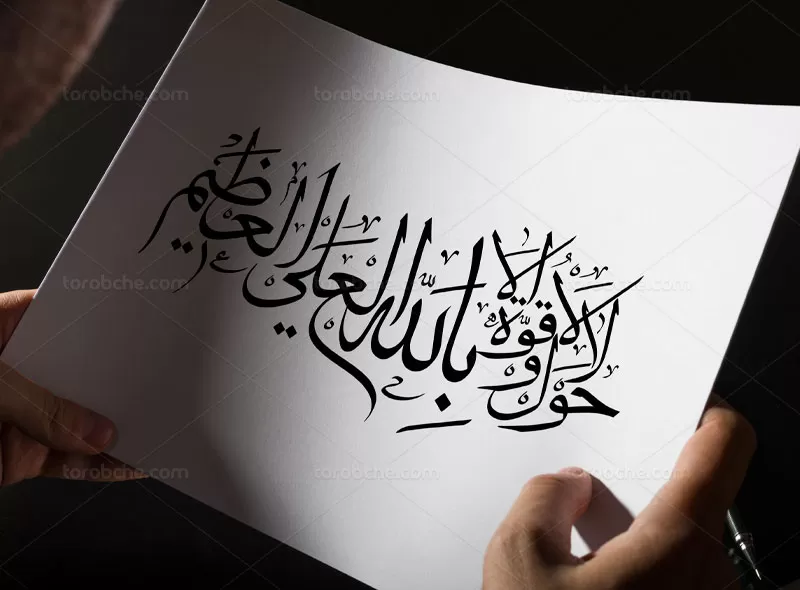 لا حول ولا قوة إلا بالله العلي العظيم
torobche.com torobche.com torobche.com
torobche.com torobche.com torobche.com
torobche.com torobche.com torobche.com